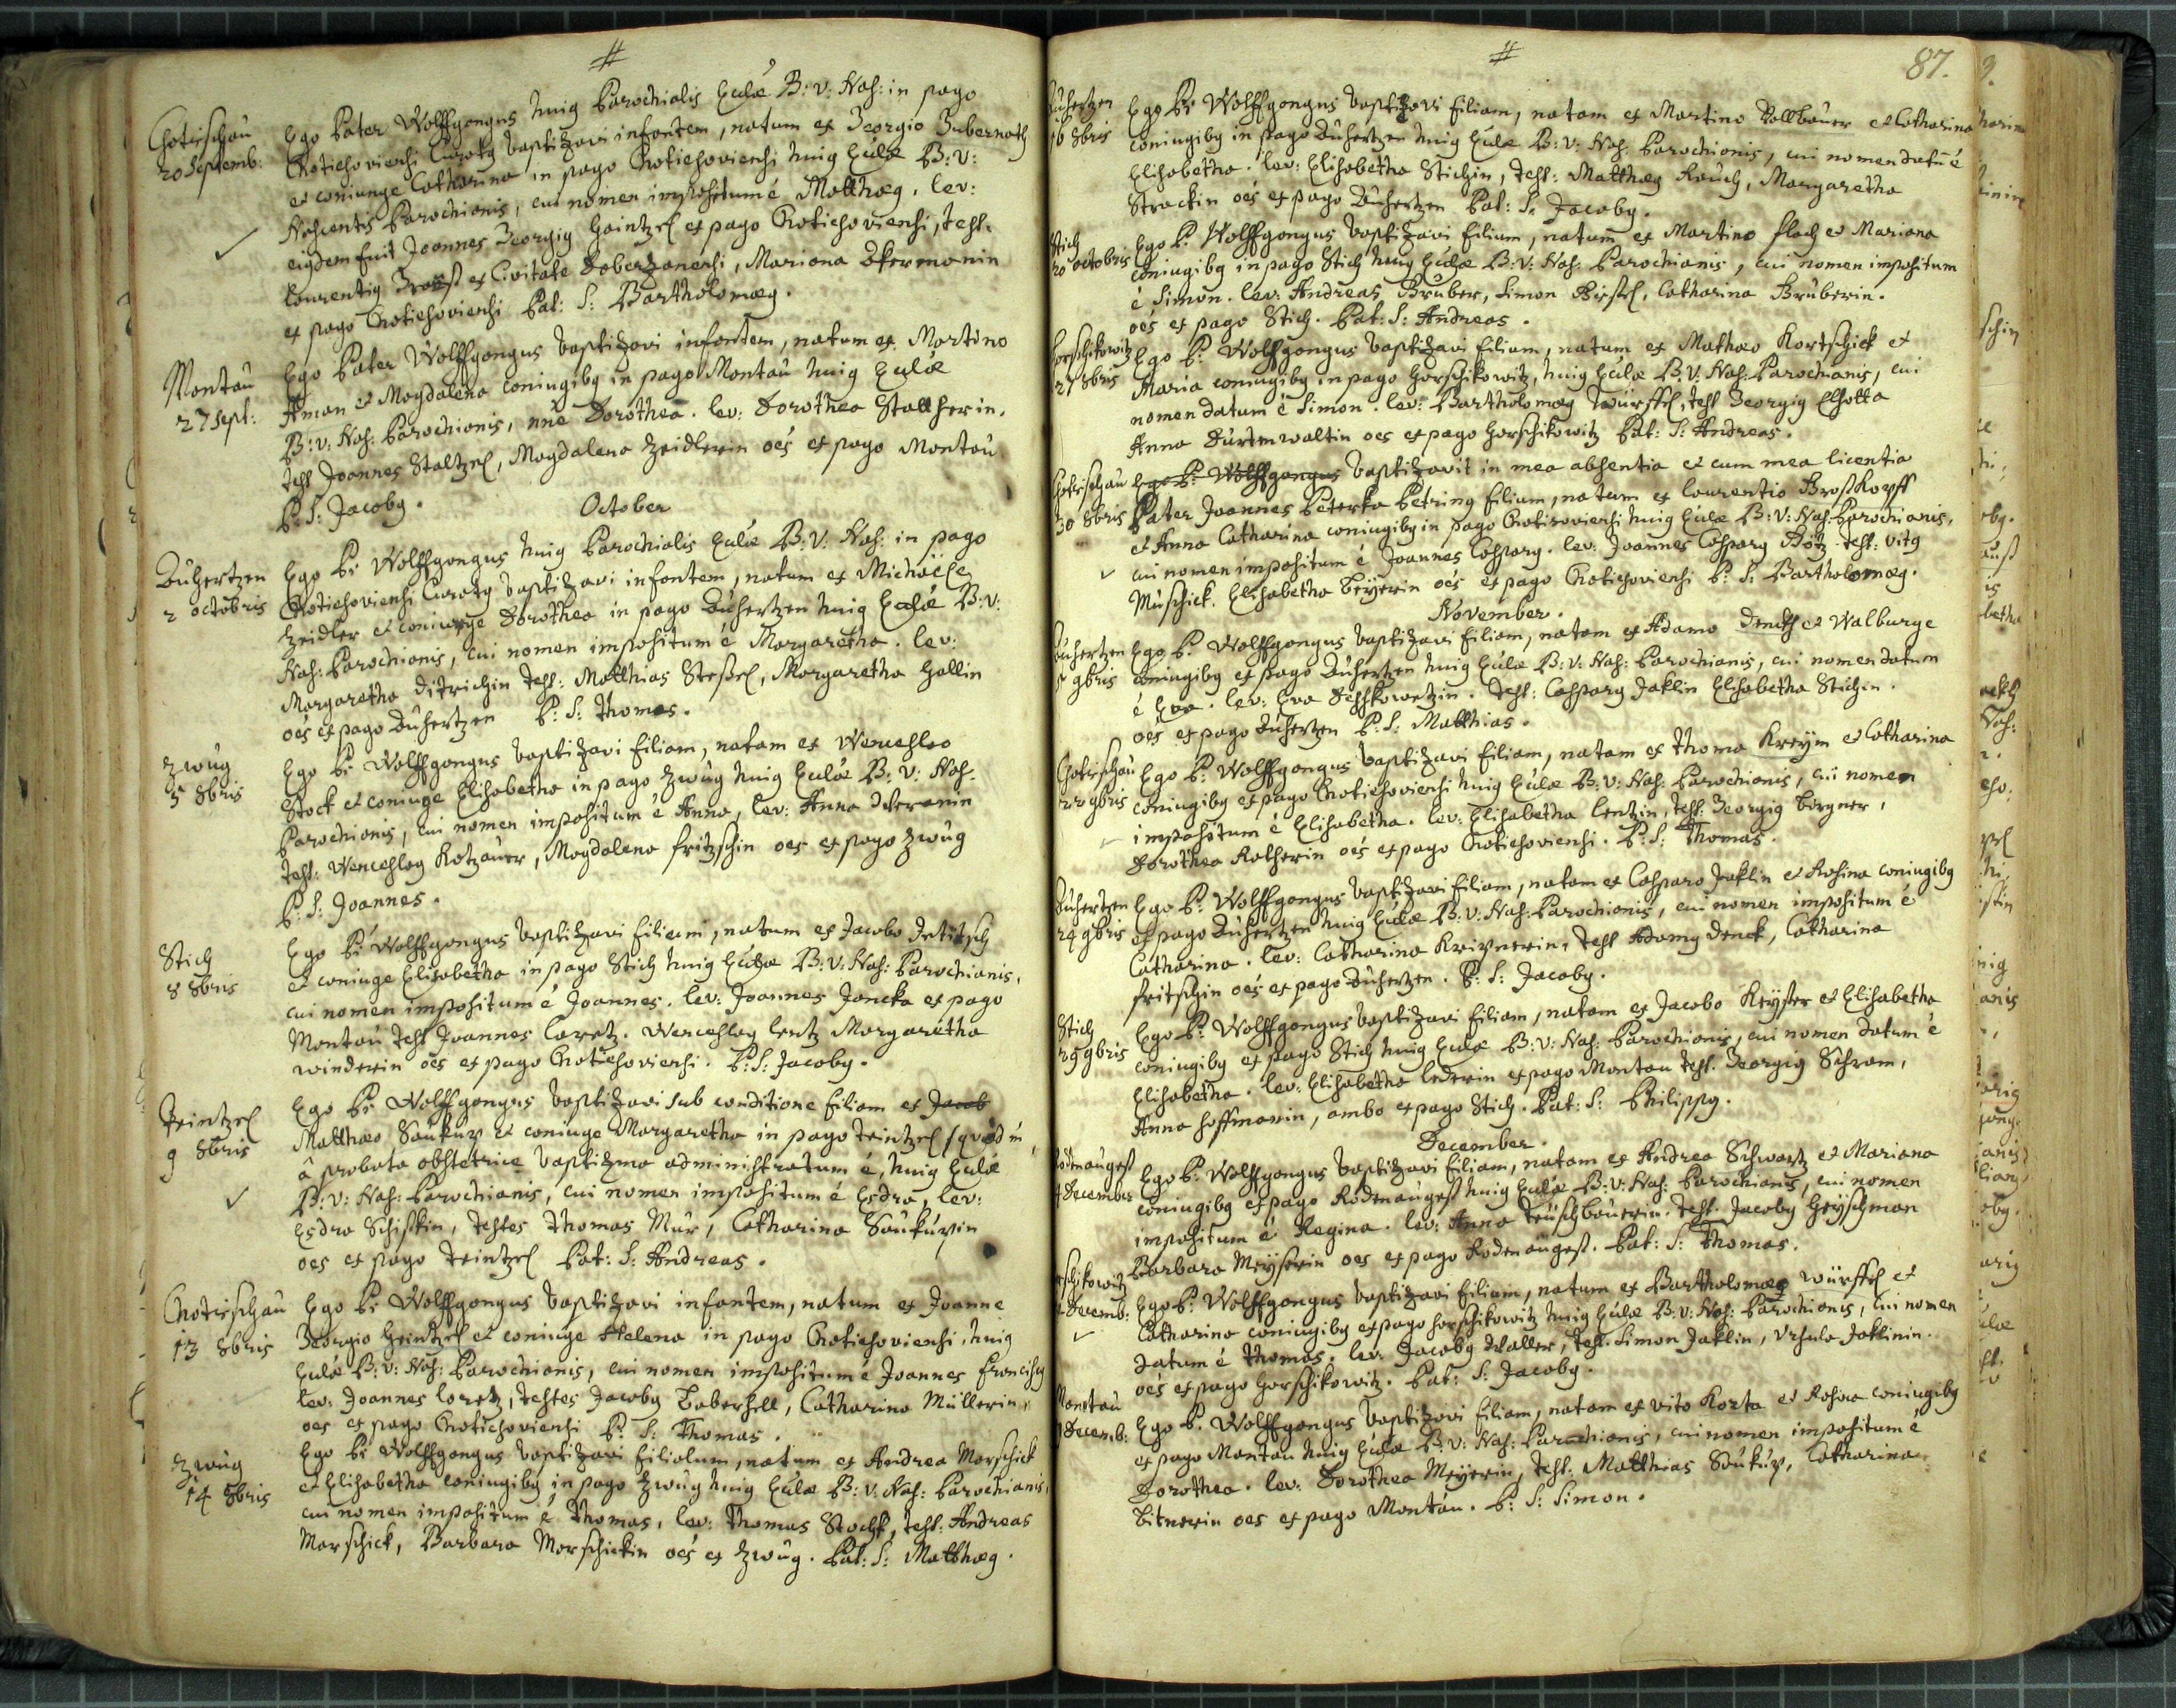 Chotieschau
20 Septemb:
Ego Pater Wolffgangus huig Parochialis Eccłæ B: V: Nas: in pago
Chotieschoviensi Curatg baptizavi infantem, natum ex Georgio Gubernath
et coniunge Catharina in pago Chotieschoviensi huig Eccłæ B: V:
Nascentis Parochianis, cui nomen impositum é Matthæg. lev:
eigdem fuit Joannes Georgig Haintzel ex pago Chotieschoviensi, test:
Laurentig ex Civitate Doberzanensi, Mariana
ex pago Chotieschoviensi Pat: S: Bartholomæg.
Montau
27 Sept:
Ego Pater Wolffgangus baptizavi infantem, natum ex Martino
Aman et Magdalena coniugibg in pago Montau huig Eccłæ
B: V: Nas: Parochianis, nñe Dorothea. lev: Dorothea
test Joannes Staltzel, Magdalena Zeidlerin oẽs ex pago Montau
P: S: Jacobg.
October
Auhertzen
2 Octobris
Ego P: Wolffgangus huig Parochialis Eccłæ B: V: Nas: in pago
Chotieschoviensi Curatg baptizavi infantem, natum ex Michaële
Zeidler et coniunge Dorothea in pago Auhertzen huig Eccłæ B: V:
Nas: Parochianis, cui nomen impositum é Margaretha. lev:
Margaretha Ditrichin test: Matthias Margaretha Hallin
oẽs ex pago Auhertzen P: S: Thomas.
Zwug
5 8bris
Ego P: Wolffgangus baptizavi filiam, natam ex Wenceslao
Stock et coniuge Elisabetha in pago Zwug huig Eccłæ B: V: Nas:
Parochianis, cui nomen impositum é Anna, lev: Anna
test: Wenceslag Kotzauer, Magdalena Fritzschin oes ex pago Zwug
P: S: Joannes.
Stich
8 8bris
Ego P: Wolffgangus baptizavi filium, natum ex Jacobo
et coniuge Elisabetha in pago Stich huig Eccłæ B: V: Nas: Parochianis,
cui nomen impositum é Joannes. lev: Joannes Jancka ex pago
Montau test Joannes Loretz. Wenceslag Lentz Margaretha
Winderin oẽs ex pago Chotieschoviensi. P: S: Jacobg.
Teintzel
9 8bris
Ego P: Wolffgangus baptizavi sub conditione filiam ex Jacob
Matthæo Saukup et coniuge Margaretha in pago Teintzel
â probata obstetrice baptizmo administratum é, huig Eccłæ
B: V: Nas: Parochianis, cui nomen impositum é Esdra, lev:
Esdra testes Thomas Mur, Catharina Saukupin
oes ex pago Teintzel Pat: S: Andreas.
Chotieschau
13 8bris
Ego P: Wolffgangus baptizavi infantem, natum ex Joanne
Georgio Heintzel et coniuge Helena in pago Chotieschoviensi, huig
Eccłæ B: V: Nas: Parochianis, cui nomen impositum é Joannes Franciscg
lev: Joannes Loretz, testes Jacobg Catharina Müllerin,
oes ex pago Chotieschoviensi P: S: Thomas.
Zwug
14 8bris
Ego P: Wolffgangus baptizavi filiolum, natum ex Andrea Marschick
et Elisabetha coniugibg in pago Zwug huig Eccłæ B: V: Nas: Parochianis,
cui nomen impositum é Thomas, lev: Thomas Stock, test: Andreas
Marschick, Barbara Marschickin oẽs ex Zwug. Pat: S: Matthæg.
87.
Auhertzen
16 8bris
Ego P: Wolffgangus baptizavi filiam, natam ex Martino Vollbauer et Catharina
coniugibg in pago Auhertzen huig Eccłæ B: V: Nas: Parochianis, cui nomen datũ é
Elisabetha. lev: Elisabetha Stichin, test: Matthæg Rauch, Margaretha
Strackin oẽs ex pago Auhertzen Pat: S: Jacobg.
Stich
20 octobris
Ego P: Wolffgangus baptizavi filium, natum ex Martino Flach et Mariana
coniugibg in pago Stich huig Eccłæ B: V: Nas: Parochianis, cui nomen impositum
é Simon. lev: Andreas Gruber, Simon Catharina Gruberin.
oẽs ex pago Stich. Pat: S: Andreas.
Horschikowitz
27 8bris
Ego P: Wolffgangus baptizavi filium, natum ex Mathæo Kortschick et
Maria coniugibg in pago Horschikowitz, huig Eccłæ B: V: Nas: Parochianis, cui
nomen datum é Simon. lev: Bartholomæg Würffel, test Georgig
Anna Dürrenwaltin oes ex pago Horschikowitz Pat: S: Andreas.
Chotieschau
30 8bris
Ego P: Wolffgangus baptizavit in mea absentia et cum mea licentia
Pater Joannes Peterka Petring filium, natum ex Laurentio Groskopff
et Anna Catharina coniugibg in pago Chotieschoviensi huig Eccłæ B: V: Nas: Parochianis,
cui nomen impositum é Joannes Casparg. lev: Joannes Casparg Götz. test: Vitg
Muschick. Elisabetha Beyerin oẽs ex pago Chotieschoviensi P: S: Bartholomæg.
November.
Auhertzen
9bris
Ego P: Wolffgangus baptizavi filiam, natam ex Adamo Denck et Walburge
coniugibg ex pago Auhertzen huig Eccłæ B: V: Nas: Parochianis, cui nomen datum
é Eva. lev: Eva test: Casparg Jaklin Elisabetha Stichin.
oẽs ex pago Auhertzen P: S: Matthias.
Chotieschau
22 9bris
Ego P: Wolffgangus baptizavi filiam, natam ex Thoma Kreym et Catharina
coniugibg ex pago Chotieschoviensi huig Eccłæ B: V: Nas: Parochianis, cui nomen
impositum é Elisabetha. lev: Elisabetha Lentzin, test: Georgig
Dorothea Katherin oẽs ex pago Chotieschoviensi. P: S: Thomas.
Auhertzen
24 9bris
Ego P: Wolffgangus baptizavi filiam, natam ex Casparo Jaklin et Rosina coniugibg
ex pago Auhertzen huig Eccłæ B: V: Nas: Parochianis, cui nomen impositum é
Catharina. lev: Catharina test Adamg Denck, Catharina
Fritschin oẽs ex pago Auhertzen. P: S: Jacobg.
Stich
29 9bris
Ego P: Wolffgangus baptizavi filiam, natam ex Jacobo et Elisabetha
coniugibg ex pago Stich huig Eccłæ B: V: Nas: Parochianis, cui nomen datum é
Elisabetha. lev: Elisabetha Lederin ex pago Montau test: Georgig Schram,
Anna Hoffmanin, ambo ex pago Stich. Pat: S: Philippg.
December.
Rodenaugest
4 December
Ego P: Wolffgangus baptizavi filiam, natam ex Andrea Schwartz et Mariana
coniugibg ex pago Rodenaugest huig Eccłæ B: V: Nas: Parochianis, cui nomen
impositum é Regina. lev: Anna Teuschbauerin. test: Jacobg Heyschman
Barbara Meyserin oes ex pago Rodenaugest. Pat: S: Thomas.
Decemb:
Ego P: Wolffgangus baptizavi filium, natum ex Bartholomæo Würffel et
Catharina coniugibg ex pago Horschikowitz huig Eccłæ B: V: Nas: Parochianis, cui nomen
datum é Thomas. lev: Jacobg Waller, test: Simon Jaklin, Ursula Jaklinin.
oẽs ex pago Horschikowitz. Pat: S: Jacobg.
Montau
Decemb:
Ego P: Wolffgangus baptizavi filiam, natam ex Vito Korta et Rosina coniugibg
ex pago Montau huig Eccłæ B: V: Nas: Parochianis, cui nomen impositum é
Dorothea. lev: Dorothea Meyerin, test: Matthias Saukup, Catharina
Bitnerin oes ex pago Montau. P: S: Simon.